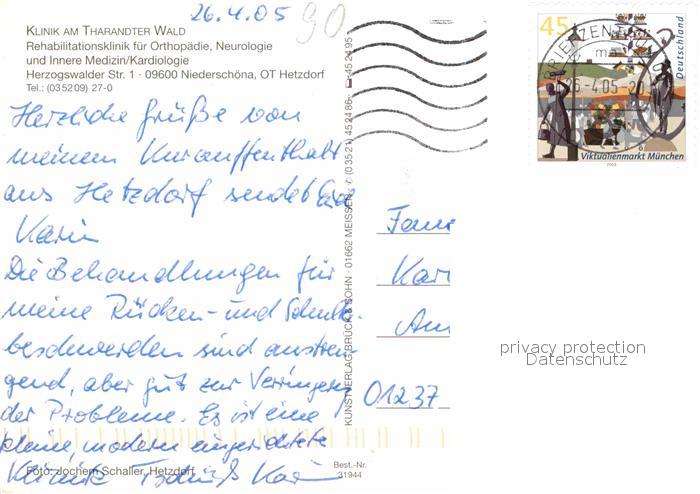 26.4.05
90
KLINIK AM THARANDTER WALD
Rehabilitationsklinik für Orthopädie, Neurologie
und Innere Medizin/Kardiologie
Herzogswalder Str. 1 · 09600 Niederschöna, OT Hetzdorf
Tel.: (03 52 09) 27-0
Herzliche Grüße von
meinem Kuraufenthalt
aus Hetzdorf sendet Euch
Karin
Die Behandlungen für
meine Rücken- und
beschwerden sind anstren-
gend, aber gut zur Verringerg
der Probleme. Es ist eine
kleine, modern eingerichtete
Klinik Tschüß Karin
Foto: Jochem Schaller, Hetzdorf
Best.-Nr.
31944
KUNSTVERLAG BRÜCK & SOHN · 01662 MEISSEN · (0 35 21) 45 24 86
45
Deutschland
BRIEFZENTRUM
26-4.05-20
Viktualienmarkt München
2003
Fam
Kar
Am
01237
privacy protection
Datenschutz